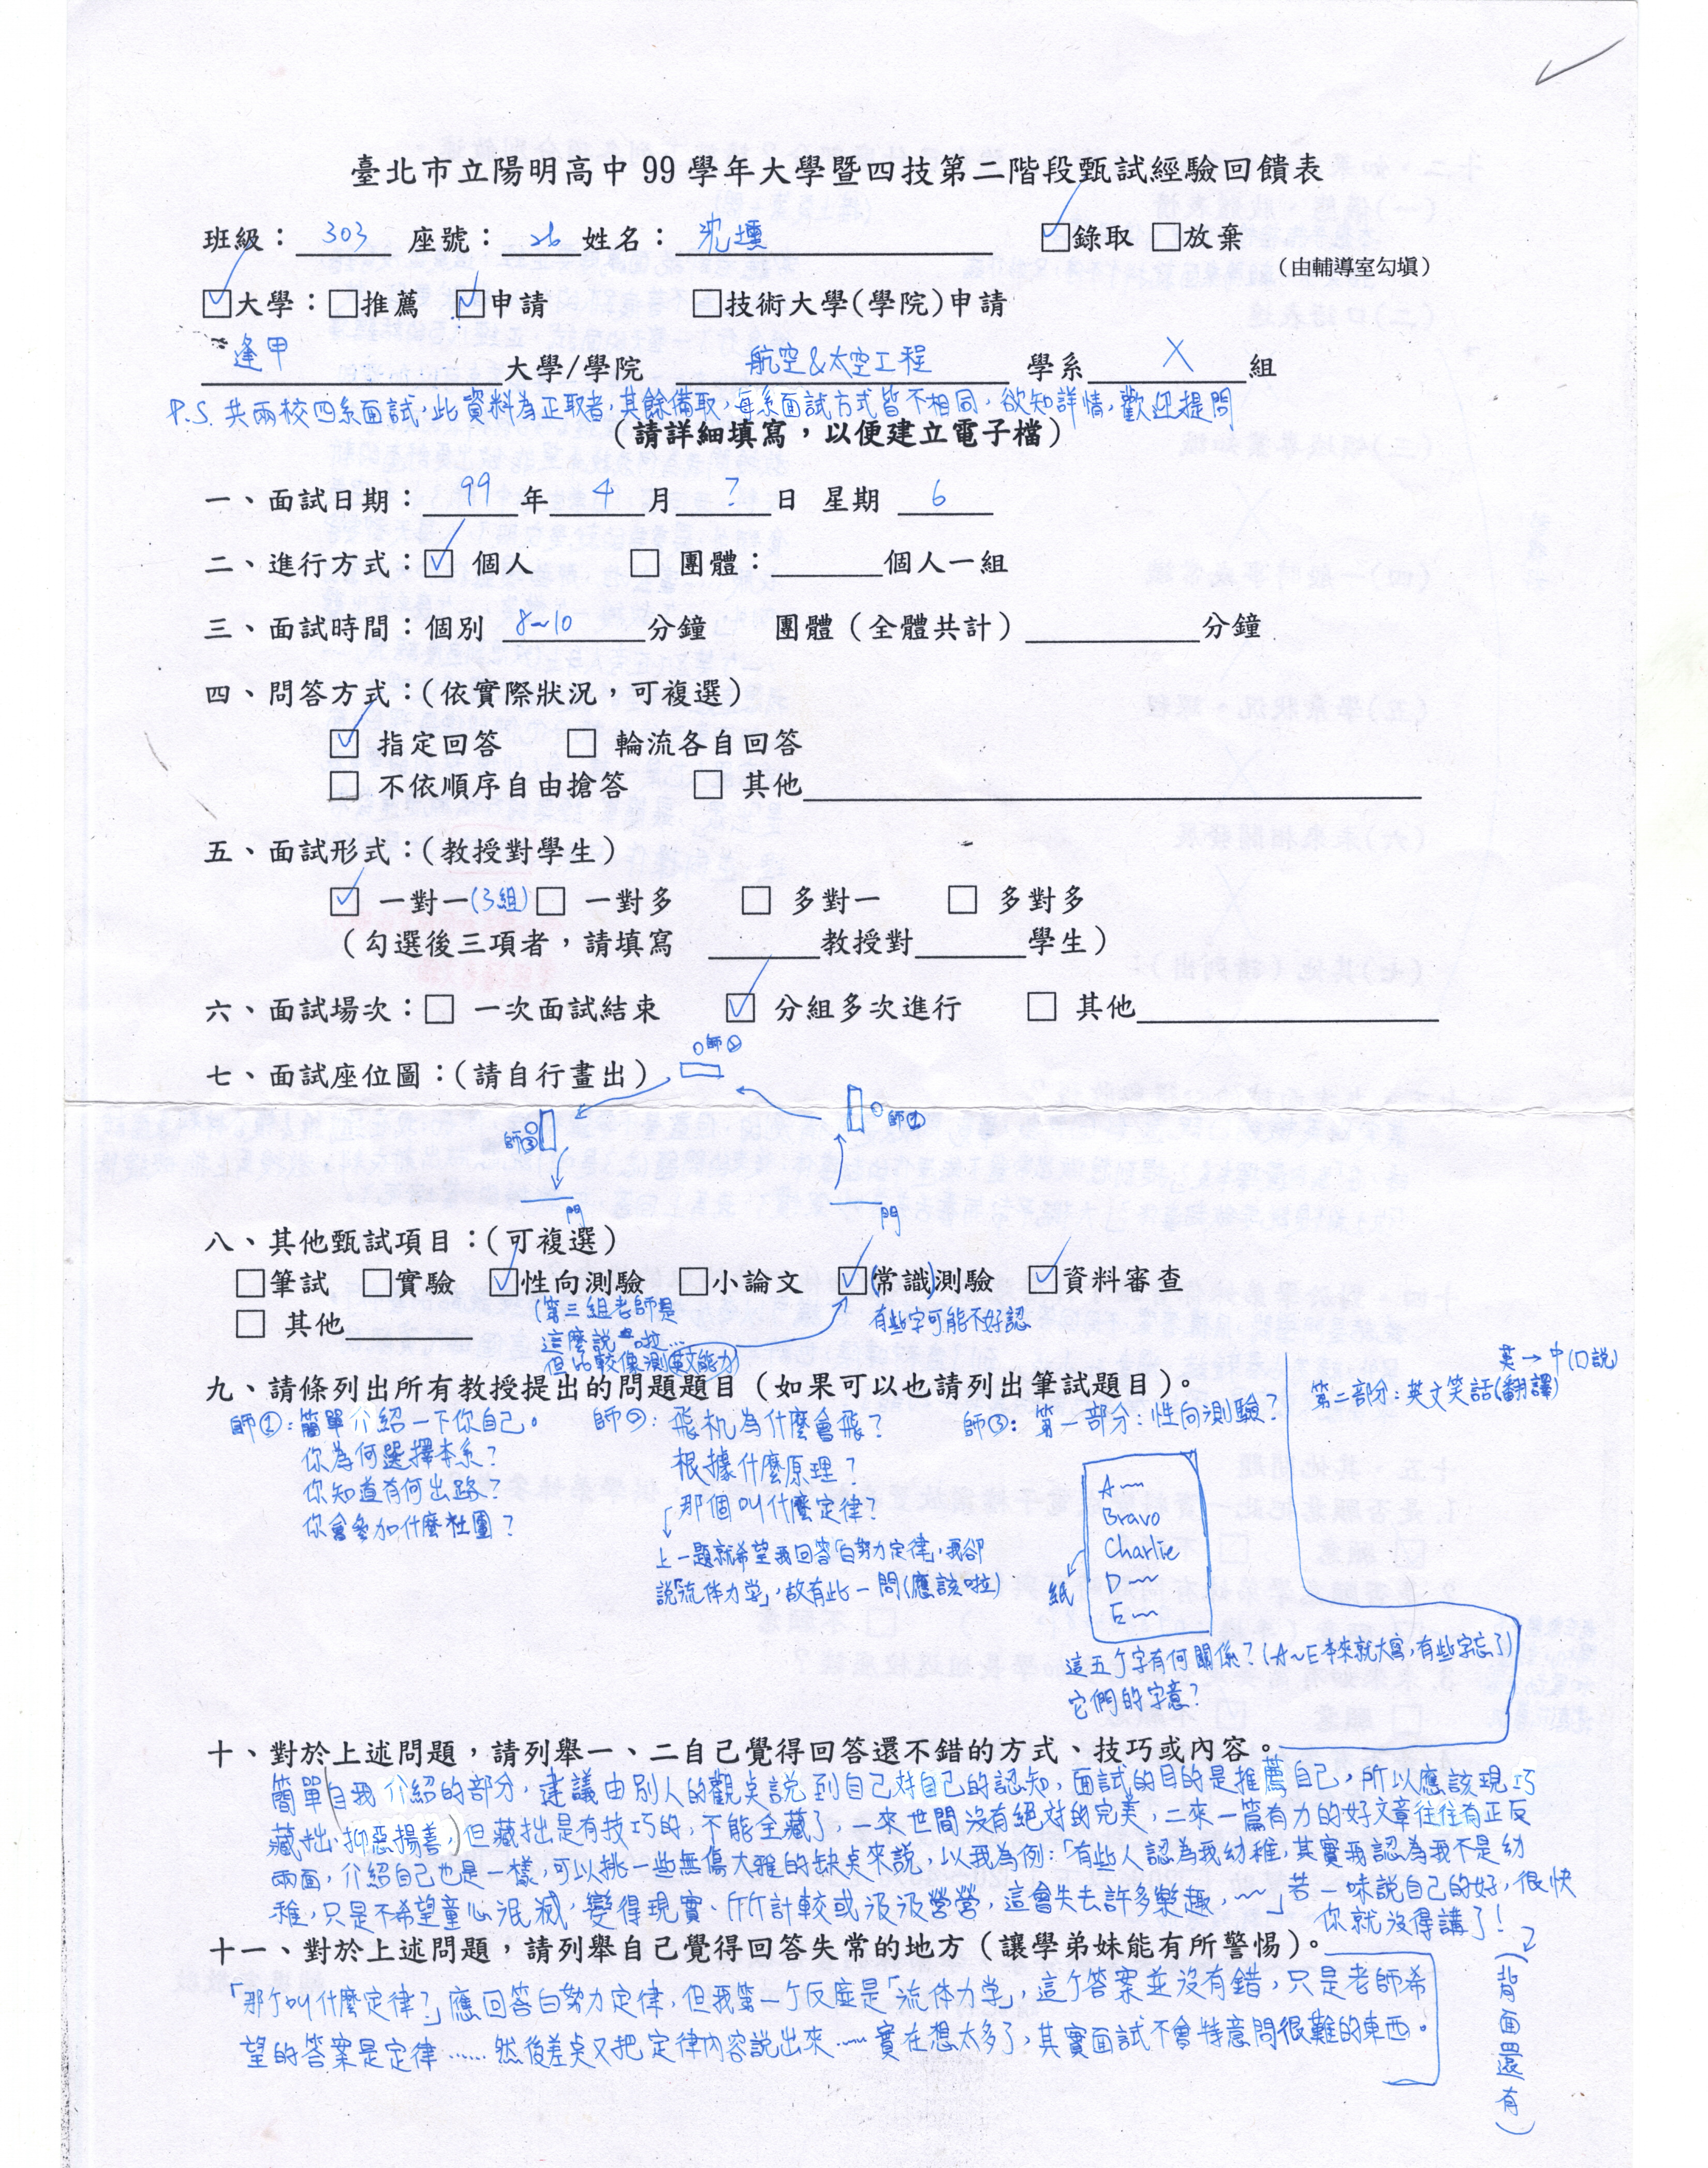 臺北市立陽明高中 99 學年大學暨四技第二階段甄試經驗回饋表
班級：303 座號：26 姓名：沈 ☑錄取 □放棄
（由輔導室勾填）
☑大學：□推薦 ☑申請 □技術大學(學院)申請
逢甲大學/學院 航空&太空工程 學系 X 組
P.S. 共兩校四系面試，此資料為正取者，其餘備取，每系面試方式皆不相同，欲知詳情，歡迎提問
（請詳細填寫，以便建立電子檔）
一、面試日期：99年4月?日 星期 6
二、進行方式：☑ 個人 □ 團體：______個人一組
三、面試時間：個別 8~10 分鐘 團體（全體共計）______分鐘
四、問答方式：(依實際狀況，可複選)
☑ 指定回答 □ 輪流各自回答
□ 不依順序自由搶答 □ 其他______
五、面試形式：(教授對學生)
☑ 一對一(3組) □ 一對多 □ 多對一 □ 多對多
（勾選後三項者，請填寫 ______教授對______學生）
六、面試場次：□ 一次面試結束 ☑ 分組多次進行 □ 其他______
七、面試座位圖：(請自行畫出)
師②
師①
師③
門
門
八、其他甄試項目：(可複選)
□筆試 □實驗 ☑性向測驗 □小論文 ☑(常識)測驗 ☑資料審查
□ 其他______
(第三組老師是
這麼說 啦...
但比較像測英文能力)
有些字可能不好認
九、請條列出所有教授提出的問題題目（如果可以也請列出筆試題目）。
師①：簡單介紹一下你自己。
你為何選擇本系？
你知道有何出路？
你會參加什麼社團？
師②：飛机為什麼會飛？
根據什麼原理？
那個叫什麼定律？
上一題就希望我回答「白努力定律」，我卻
說「流体力学」，故有此一問(應該啦)
師③：第一部分：性向測驗？
A~~
Bravo
Charlie
D~~
E~~
紙
這五个字有何關係？(A~E本來就大寫，有些字忘了)
它們的字意？
英→中(口說)
第二部分：英文笑話(翻譯)
十、對於上述問題，請列舉一、二自己覺得回答還不錯的方式、技巧或內容。
簡單自我介紹的部分，建議由別人的觀点說到自己对自己的認知，面試的目的是推薦自己，所以應該現巧
藏拙、抑惡揚善，但藏拙是有技巧的，不能全藏了，一來世間沒有絕对的完美，二來一篇有力的好文章往往有正反
兩面，介紹自己也是一樣，可以挑一些無傷大雅的缺点來說，以我為例：「有些人認為我幼稚，其實我認為我不是幼
稚，只是不希望童心泯滅，變得現實、斤斤計較或汲汲營營，這會失去許多樂趣，~~」若一味說自己的好，很快
你就沒得講了！
十一、對於上述問題，請列舉自己覺得回答失常的地方（讓學弟妹能有所警惕）。
「那个叫什麼定律？」應回答白努力定律，但我第一个反應是「流体力学」，這个答案並沒有錯，只是老師希
望的答案是定律……然後差点又把定律內容說出來……實在想太多了，其實面試不會特意問很難的東西。
(背面還有)